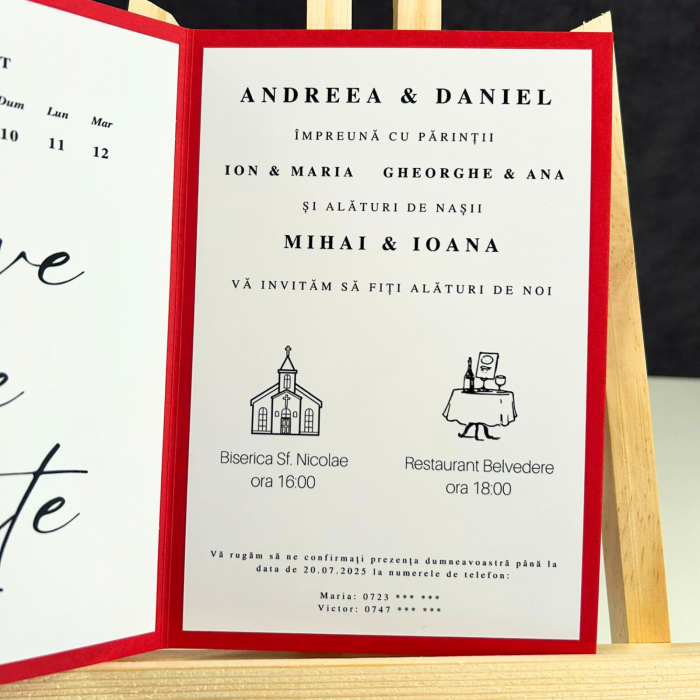 T
Dum Lun Mar
10 11 12
ANDREEA & DANIEL
ÎMPREUNĂ CU PĂRINȚII
ION & MARIA GHEORGHE & ANA
ȘI ALĂTURI DE NAȘII
MIHAI & IOANA
VĂ INVITĂM SĂ FIȚI ALĂTURI DE NOI
Biserica Sf. Nicolae
ora 16:00
Restaurant Belvedere
ora 18:00
Vă rugăm să ne confirmați prezența dumneavoastră până la
data de 20.07.2025 la numerele de telefon:
Maria: 0723 *** ***
Victor: 0747 *** ***